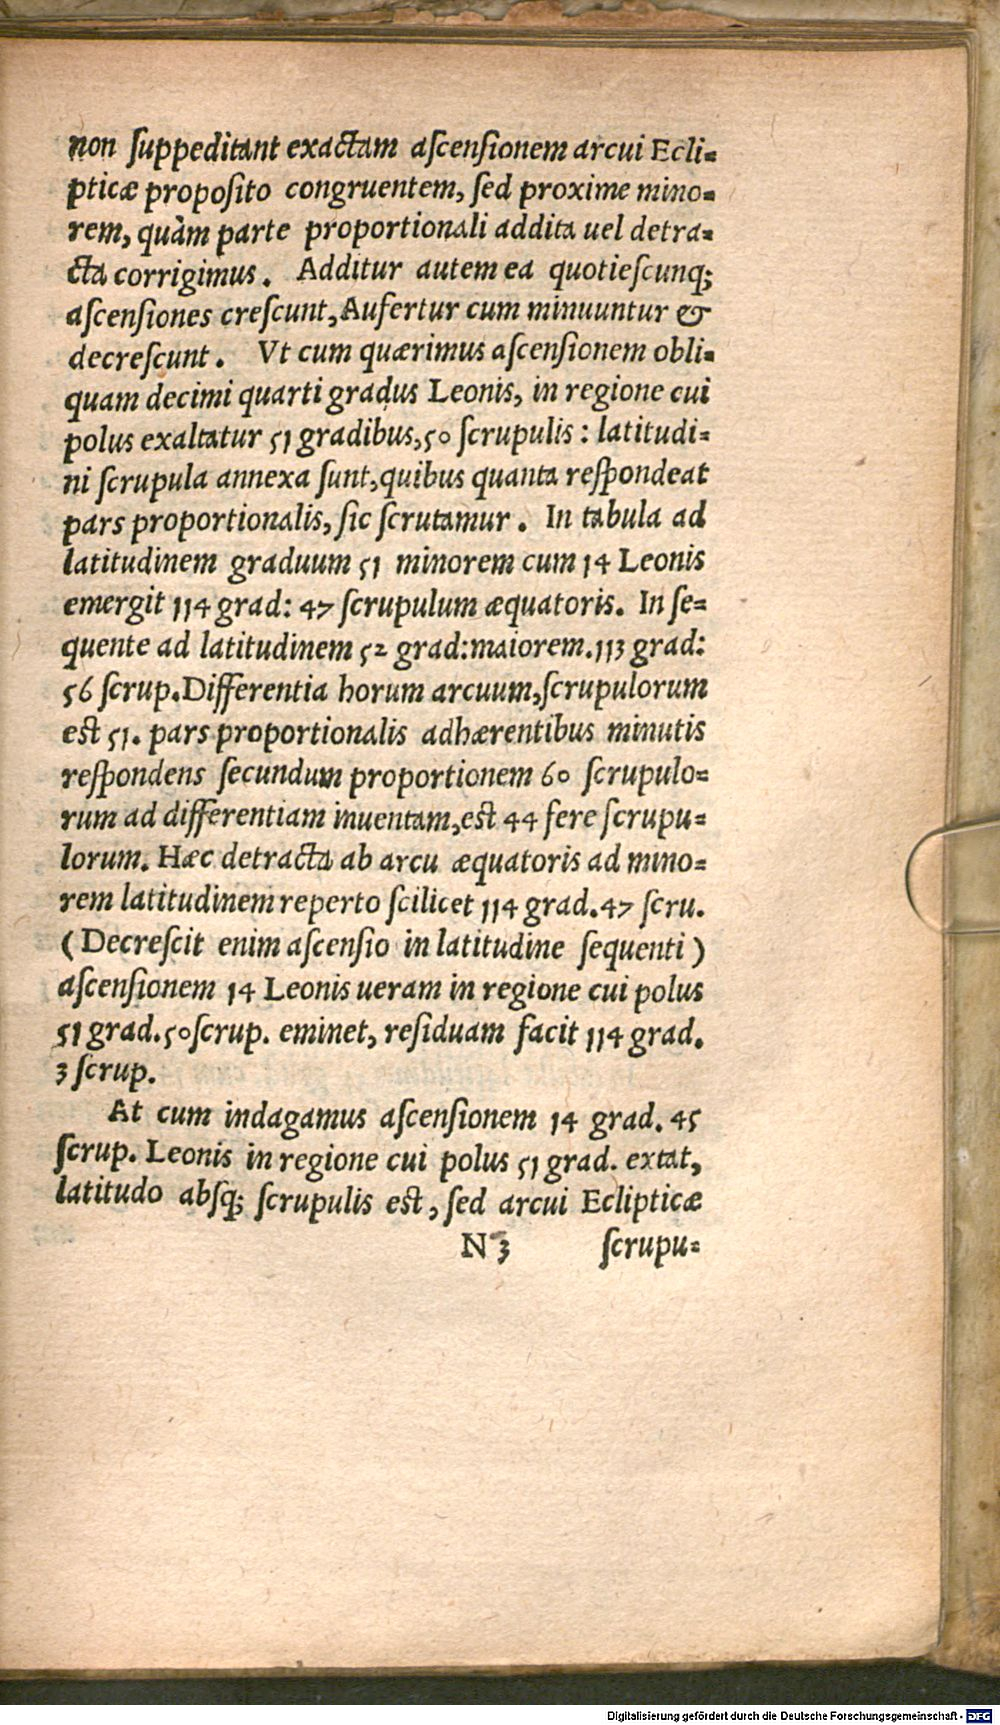 non ſuppeditant exactam aſcenſionem arcui Ecli⸗
pticæ propoſito congruentem, ſed proxime mino⸗
rem, quàm parte proportionali addita uel detra⸗
cta corrigimus. Additur autem ea quotieſcunq;
aſcenſiones creſcunt, Aufertur cum minuuntur &
decreſcunt. Vt cum quærimus aſcenſionem obli⸗
quam decimi quarti gradus Leonis, in regione cui
polus exaltatur 51 gradibus, 50 ſcrupulis: latitudi⸗
ni ſcrupula annexa ſunt, quibus quanta reſpondeat
pars proportionalis, ſic ſcrutamur. In tabula ad
latitudinem graduum 51 minorem cum 14 Leonis
emergit 114 grad: 47 ſcrupulum æquatoris. In ſe⸗
quente ad latitudinem 52 grad: maiorem. 113 grad:
56 ſcrup. Differentia horum arcuum, ſcrupulorum
est 51. pars proportionalis adhærentibus minutis
reſpondens ſecundum proportionem 60 ſcrupulo⸗
rum ad differentiam inuentam, est 44 fere ſcrupu⸗
lorum. Hæc detracta ab arcu æquatoris ad mino⸗
rem latitudinem reperto ſcilicet 114 grad. 47 ſcru.
(Decreſcit enim aſcenſio in latitudine ſequenti)
aſcenſionem 14 Leonis ueram in regione cui polus
51 grad. 50 ſcrup. eminet, reſiduam facit 114 grad.
3 ſcrup.
At cum indagamus aſcenſionem 14 grad. 45
ſcrup. Leonis in regione cui polus 51 grad. extat,
latitudo abſq; ſcrupulis est, ſed arcui Eclipticæ
N 3 ſcrupu⸗
Digitalisierung gefördert durch die Deutsche Forschungsgemeinschaft - DFG